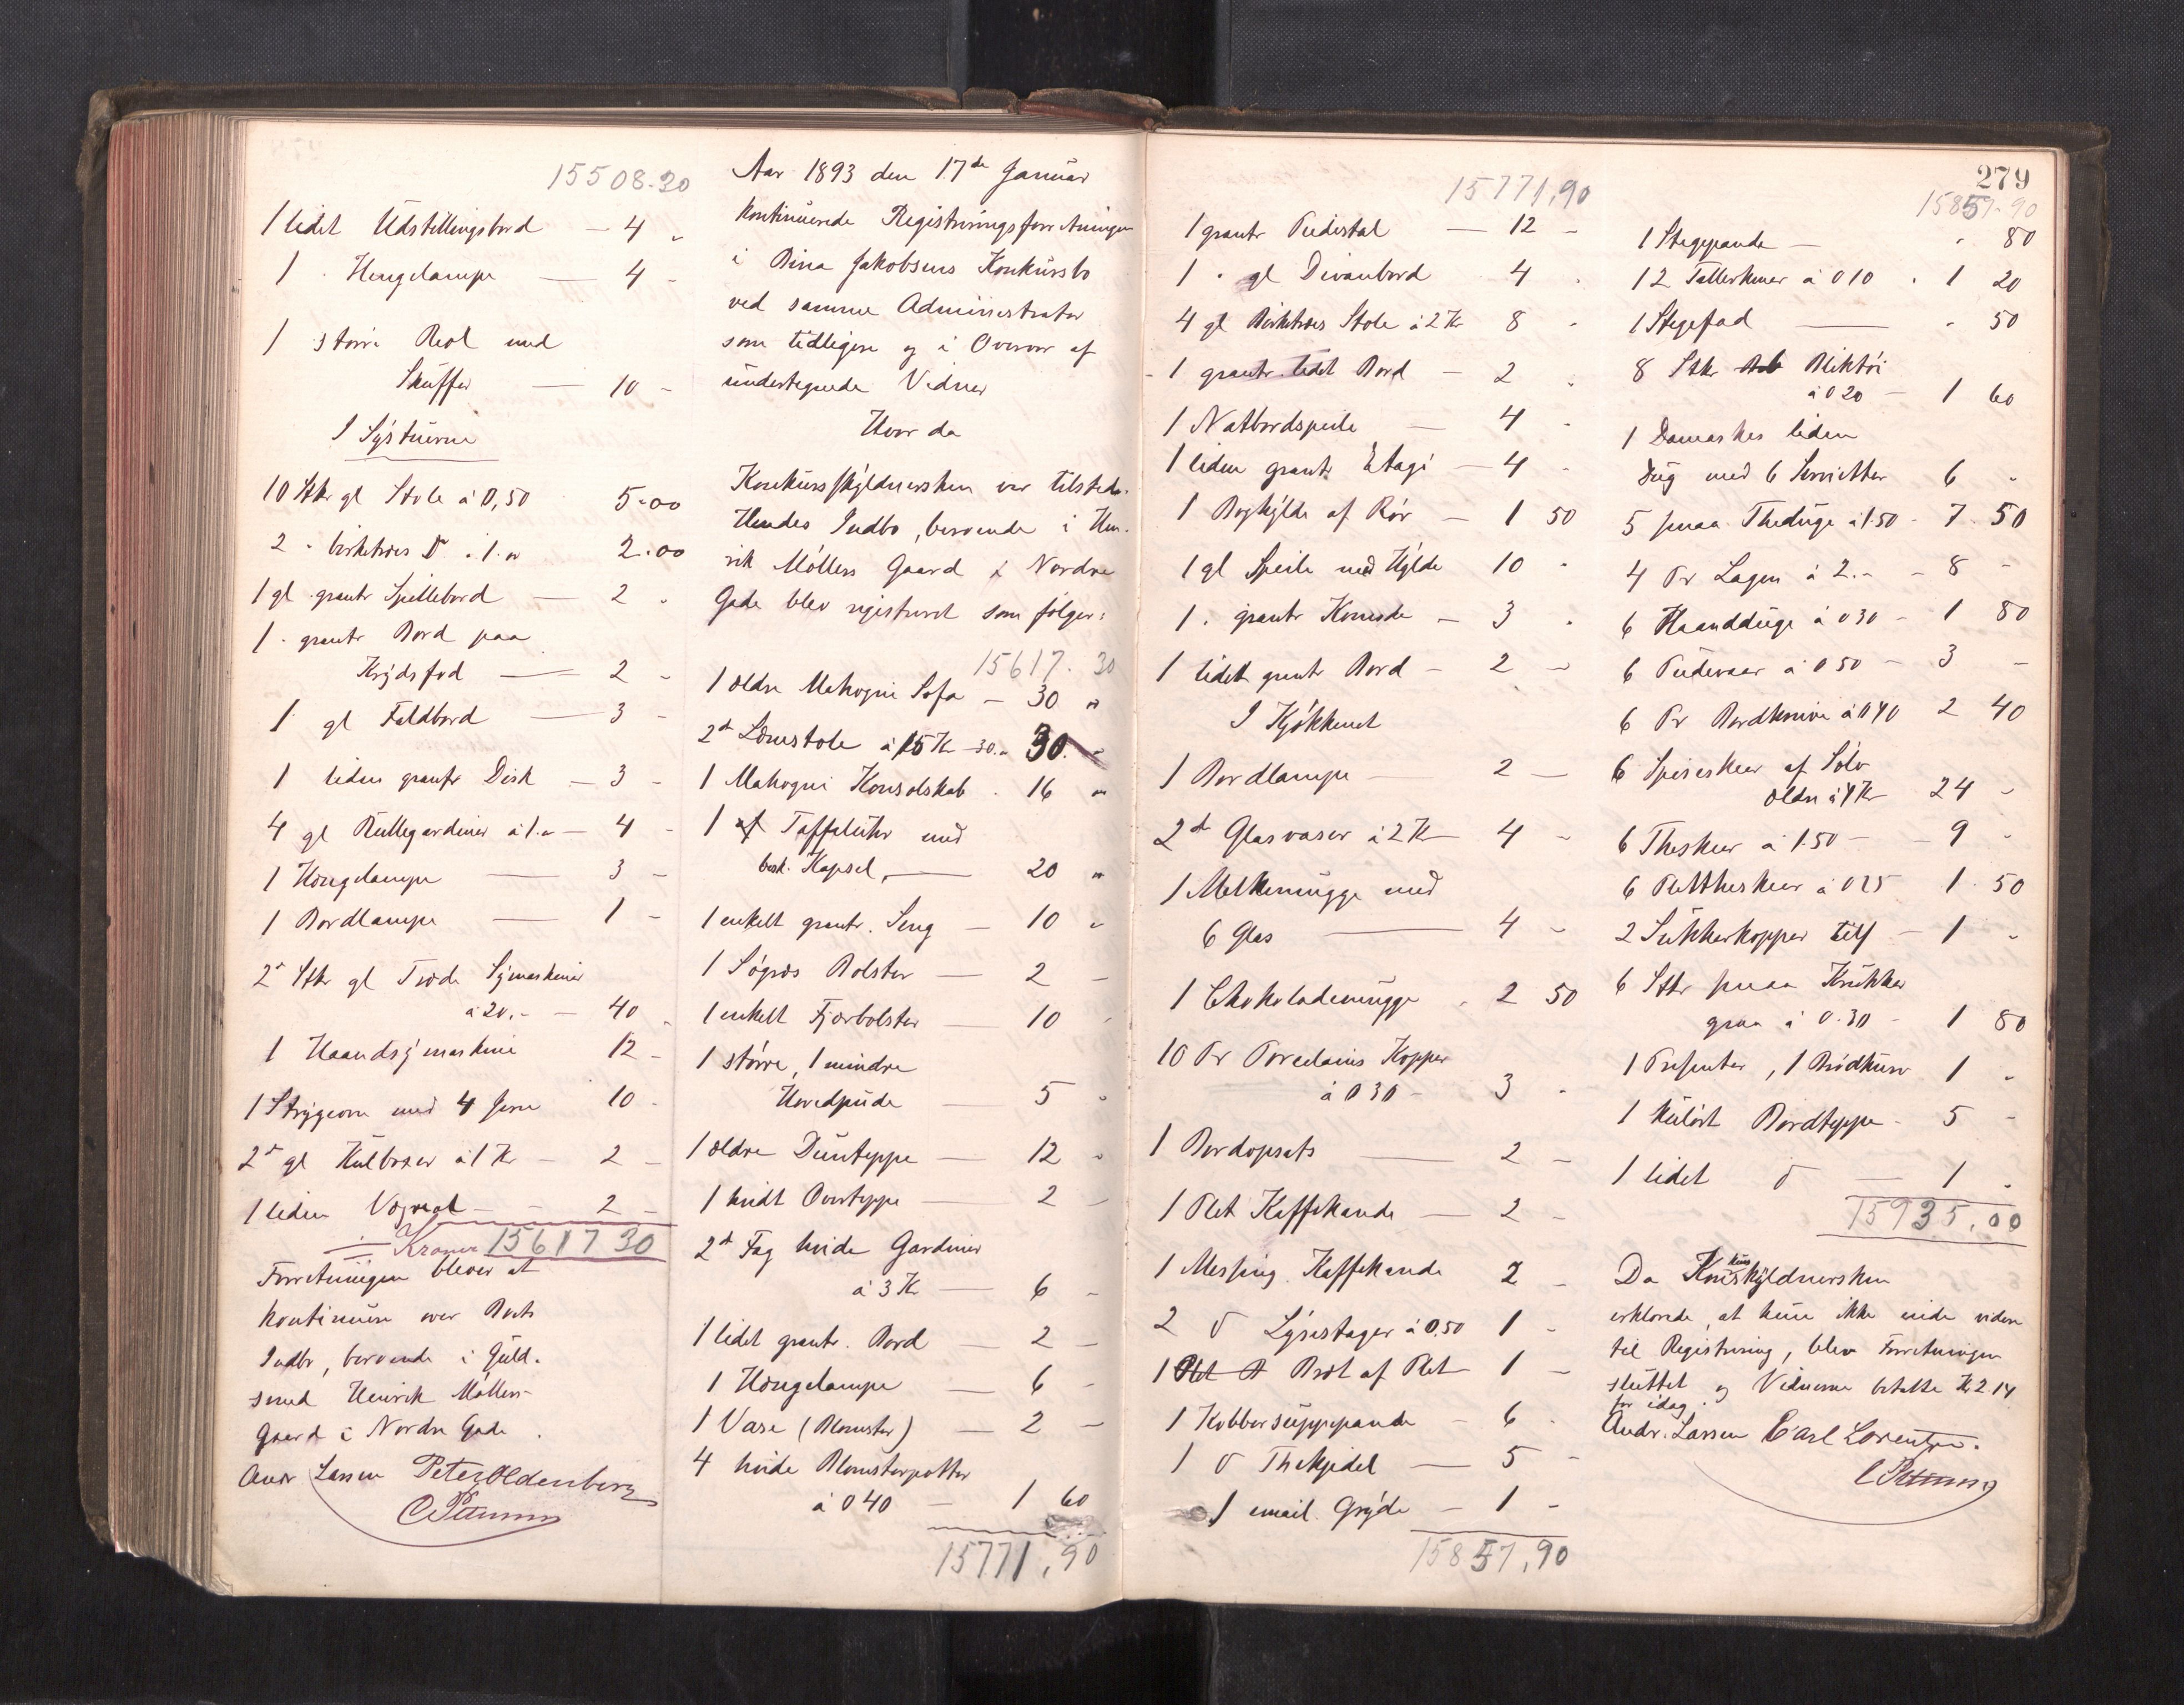 15508.30
1 lidet Udstillingsbord — 4 "
1 " Hengelampe — 4 -
1 större Reol med
Skuffer — 10 -
I Systuerne
10 Stkr gl Stole á 0,50 5.00
2 " birketræs Do á 1.00 2.00
1 gl grantr Spillebord — 2 "
1 " grantr Bord paa
Krydsfod — 2 -
1 gl Faldbord — 3 -
1 liden grantr Disk — 3 -
4 gl Rullegardiner á 1.- — 4 -
1 Hængelampe — 3 -
1 Bordlampe — 1 -
2 Stkr gl Træde Symaskiner
á 20.- — 40 "
1 Haandsymaskine 12 -
1 Strygeovn med 4 Jern 10 -
2 gl Kulboxer á 1 Kr — 2 -
1 liden — 2 -
Kroner 15617 30
Forretningen bliver at
kontinuere over Boets
Indbo, beroende i Guld-
smed Henrik Møllers
Gaard i Nordre Gade.
Andr Larsen Peter Oldenborg
Aar 1893 den 17de Januar
kontinuerede Registreringsforretningen
i Dina Jakobsens Konkursbo
ved samme Administrator
som tidligere og i Overvær af
undertegnede Vidner
Hvor da
Konkursskyldnersken var tilstede.
Hendes Indbo, beroende i Hen-
rik Møllers Gaard i Nordre
Gade blev registreret som følger:
15617.30
1 ældre Mahogni Sofa — 30 "
2 Lænestole á 15 Kr 30.- 30. -
1 Mahogni Konsolskab - 16 "
1 Taffeluhr med
besk. Kapsel, — 20 "
1 enkelt grantr. Seng — 10 "
1 Søgræs Bolster — 2 -
1 enkelt Fjærbolster — 10 -
1 større, 1 mindre
Hovedpude — 5 "
1 ældre Dunteppe — 12 "
1 hvidt Overteppe — 2 -
2 Fag hvide Gardiner
á 3 Kr — 6 -
1 lidet grantr. Bord — 2 -
1 Hængelampe — 6 -
1 Vase (Blomster) — 2 -
4 hvide Blomsterpotter
á 0 40 — 1 60
15771,90
15771,90
1 grantr Piedestal — 12 -
1 " gl Divanbord 4 "
4 gl Birketræs Stole á 2 Kr 8 "
1 grantr lidet Bord — 2 "
1 Natbordspeile — 4 -
1 liden grantr Etagé — 4 -
1 Boghylde af Rør — 1 50
1 gl Speile med Hylde 10 "
1 " grantr Komode — 3 "
1 lidet grantr Bord — 2 -
I Kjøkkenet
1 Bordlampe — 2 —
2 Glasvaser á 2 Kr — 4 -
1 Melkemugge med
6 Glas — 4 -
1 Chokolademugge " 2 50
10 Pr Porcelains Kopper
á 0 30 - 3 -
1 Bordopsats — 2 -
1 Plet Kaffekande — 2 -
1 Messing Kaffekande 2 -
2 Do Lysestager á 0.50 1 -
1 Bræt af Plet — 1 —
1 Kobbersuppepande — 6 -
1 Do Thekjedel — 5 -
1 email. Gryde — 1 -
15857,90
279
15857.90
1 Stegepande — " 80
12 Tallerkener á 0 10 " 1 20
1 Stegefad — " 50
8 Stkr Bliktøi
á 0 20 — 1 60
1 Damaskes liden
Dug med 6 Servietter 6 "
5 smaa Theduge á 1.50 - 7.50
4 Pr Lagen á 2.- - 8 -
6 Haandduge á 0 30 - 1 80
6 Pudevaer á 0 50 — 3 -
6 Pr Bordknive á 0 40 2 40
6 Spiseskeer af Sølv
ældre á 4 Kr 24 -
6 Theskeer á 1.50 — 9 -
6 Plettheskeer á 0 25 1.50
2 Sukkerkopper — 1 "
6 Stkr smaa Krukker
graa á 0.30 - 1 80
1 Presenter, 1 Brødkurv 1 "
1 kulørt Bordteppe - 5 -
1 lidet Do — 1 -
15935,00
Da Konkursskyldnersken
erklærede, at hun ikke eiede videre
til Registrering, blev Forretningen
sluttet og Vidnerne betalte Kr 2.14
for idag.
Andr. Larsen Carl Lorentzen.